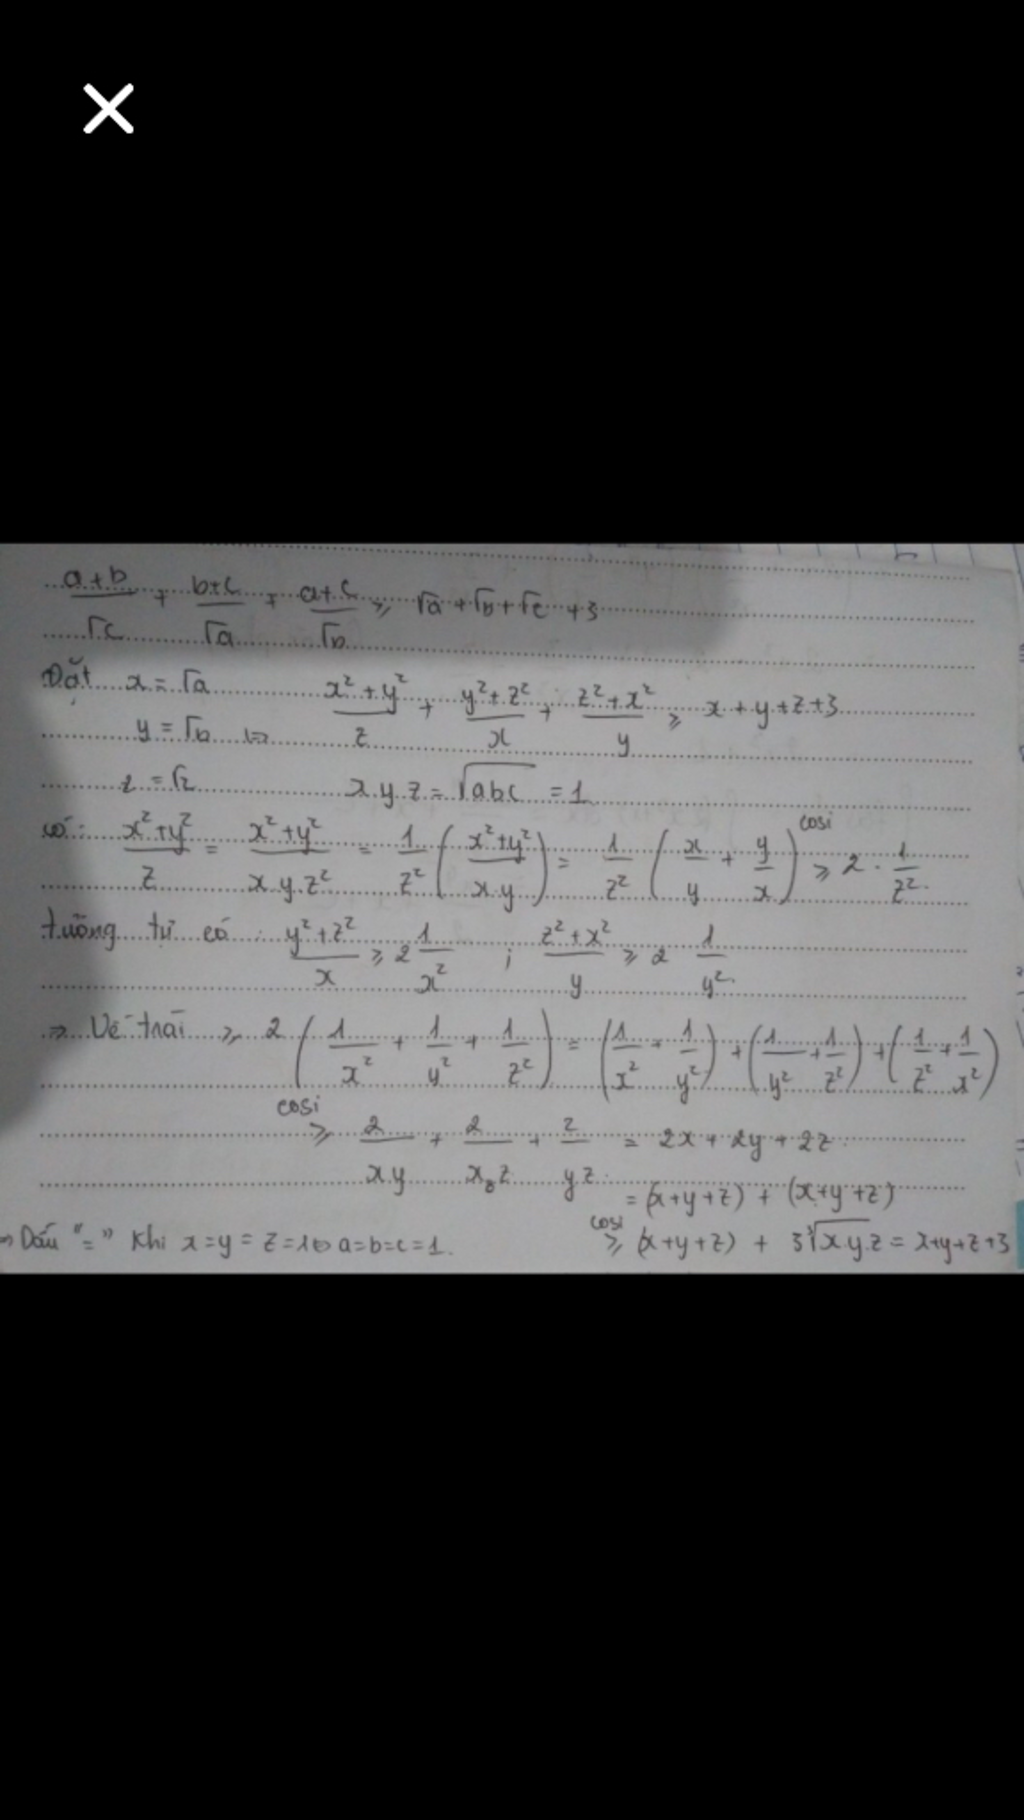 a+b/√c + b+c/√a + a+c/√b ≥ √a + √b + √c + 3
Đặt x = √a x²+y²/z + y²+z²/x + z²+x²/y ≥ x+y+z+3
y = √b ⇔
z = √z x.y.z = √abc = 1
có: x²+y²/z = x²+y²/x.y.z² = 1/z² (x²+y²/x.y) = 1/z² (x/y + y/x) cosi ≥ 2 · 1/z²
tương tự có : y²+z²/x ≥ 2 1/x² ; z²+x²/y ≥ 2 1/y²
⇒ Vế trái ≥ 2 (1/x² + 1/y² + 1/z²) = (1/x² + 1/y²) + (1/y² + 1/z²) + (1/z² + 1/x²)
cosi ≥ 2/x.y + 2/x.z + 2/y.z = 2x + 2y + 2z
= (x+y+z) + (x+y+z)
cosi ≥ (x+y+z) + 3∛x.y.z = x+y+z+3
⇒ Dấu "=" khi x=y=z=1 ⇔ a=b=c=1.